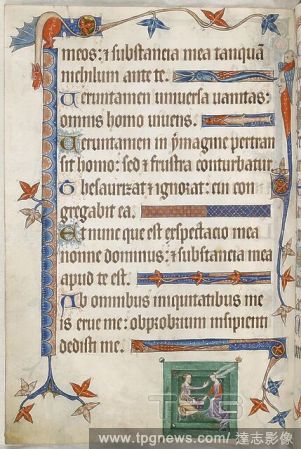 meos: ⁊ substancia mea tanquā
nichilum ante te.
Ueruntamen universa vanitas:
omnis homo vivens.
Ueruntamen in ymagine pertran
sit homo: sed ⁊ frustra conturbatur
Thesaurizat ⁊ ignorat: cui con
gregabit ea.
Et nunc que est expectacio mea
nonne dominus: ⁊ substancia mea
apud te est.
Ab omnibus iniquitatibus me
is erue me: obprobrium insipienti
dedisti me.
TPG
www.tpgnews.com / 達志影像